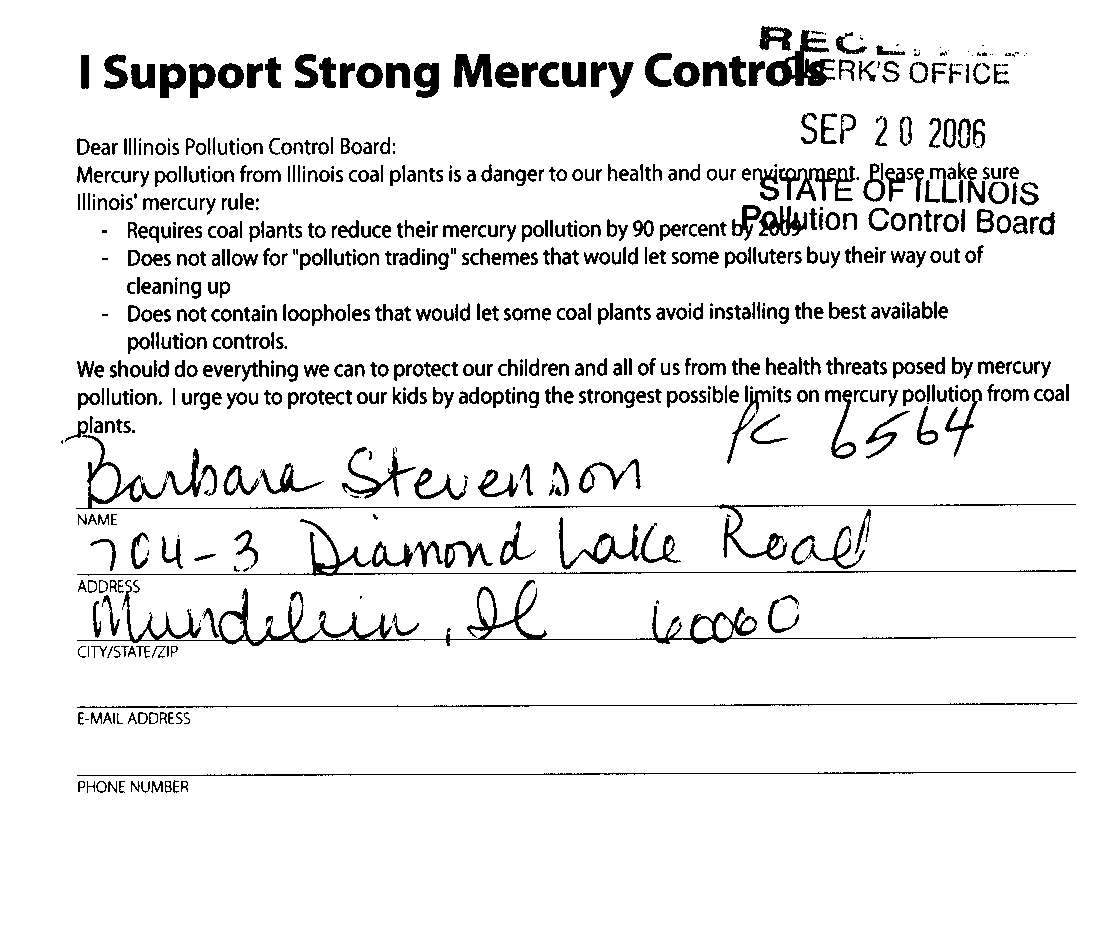 RECEIVED
I Support Strong Mercury Controls
CLERK'S OFFICE
SEP 20 2006
Dear Illinois Pollution Control Board:
Mercury pollution from Illinois coal plants is a danger to our health and our environment. Please make sure
STATE OF ILLINOIS
Illinois' mercury rule:
Pollution Control Board
- Requires coal plants to reduce their mercury pollution by 90 percent by 2009
- Does not allow for "pollution trading" schemes that would let some polluters buy their way out of
cleaning up
- Does not contain loopholes that would let some coal plants avoid installing the best available
pollution controls.
We should do everything we can to protect our children and all of us from the health threats posed by mercury
pollution. I urge you to protect our kids by adopting the strongest possible limits on mercury pollution from coal
plants.
PC 6564
Barbara Stevenson
NAME
704-3 Diamond Lake Road
ADDRESS
Mundelein, Il 60060
CITY/STATE/ZIP
E-MAIL ADDRESS
PHONE NUMBER